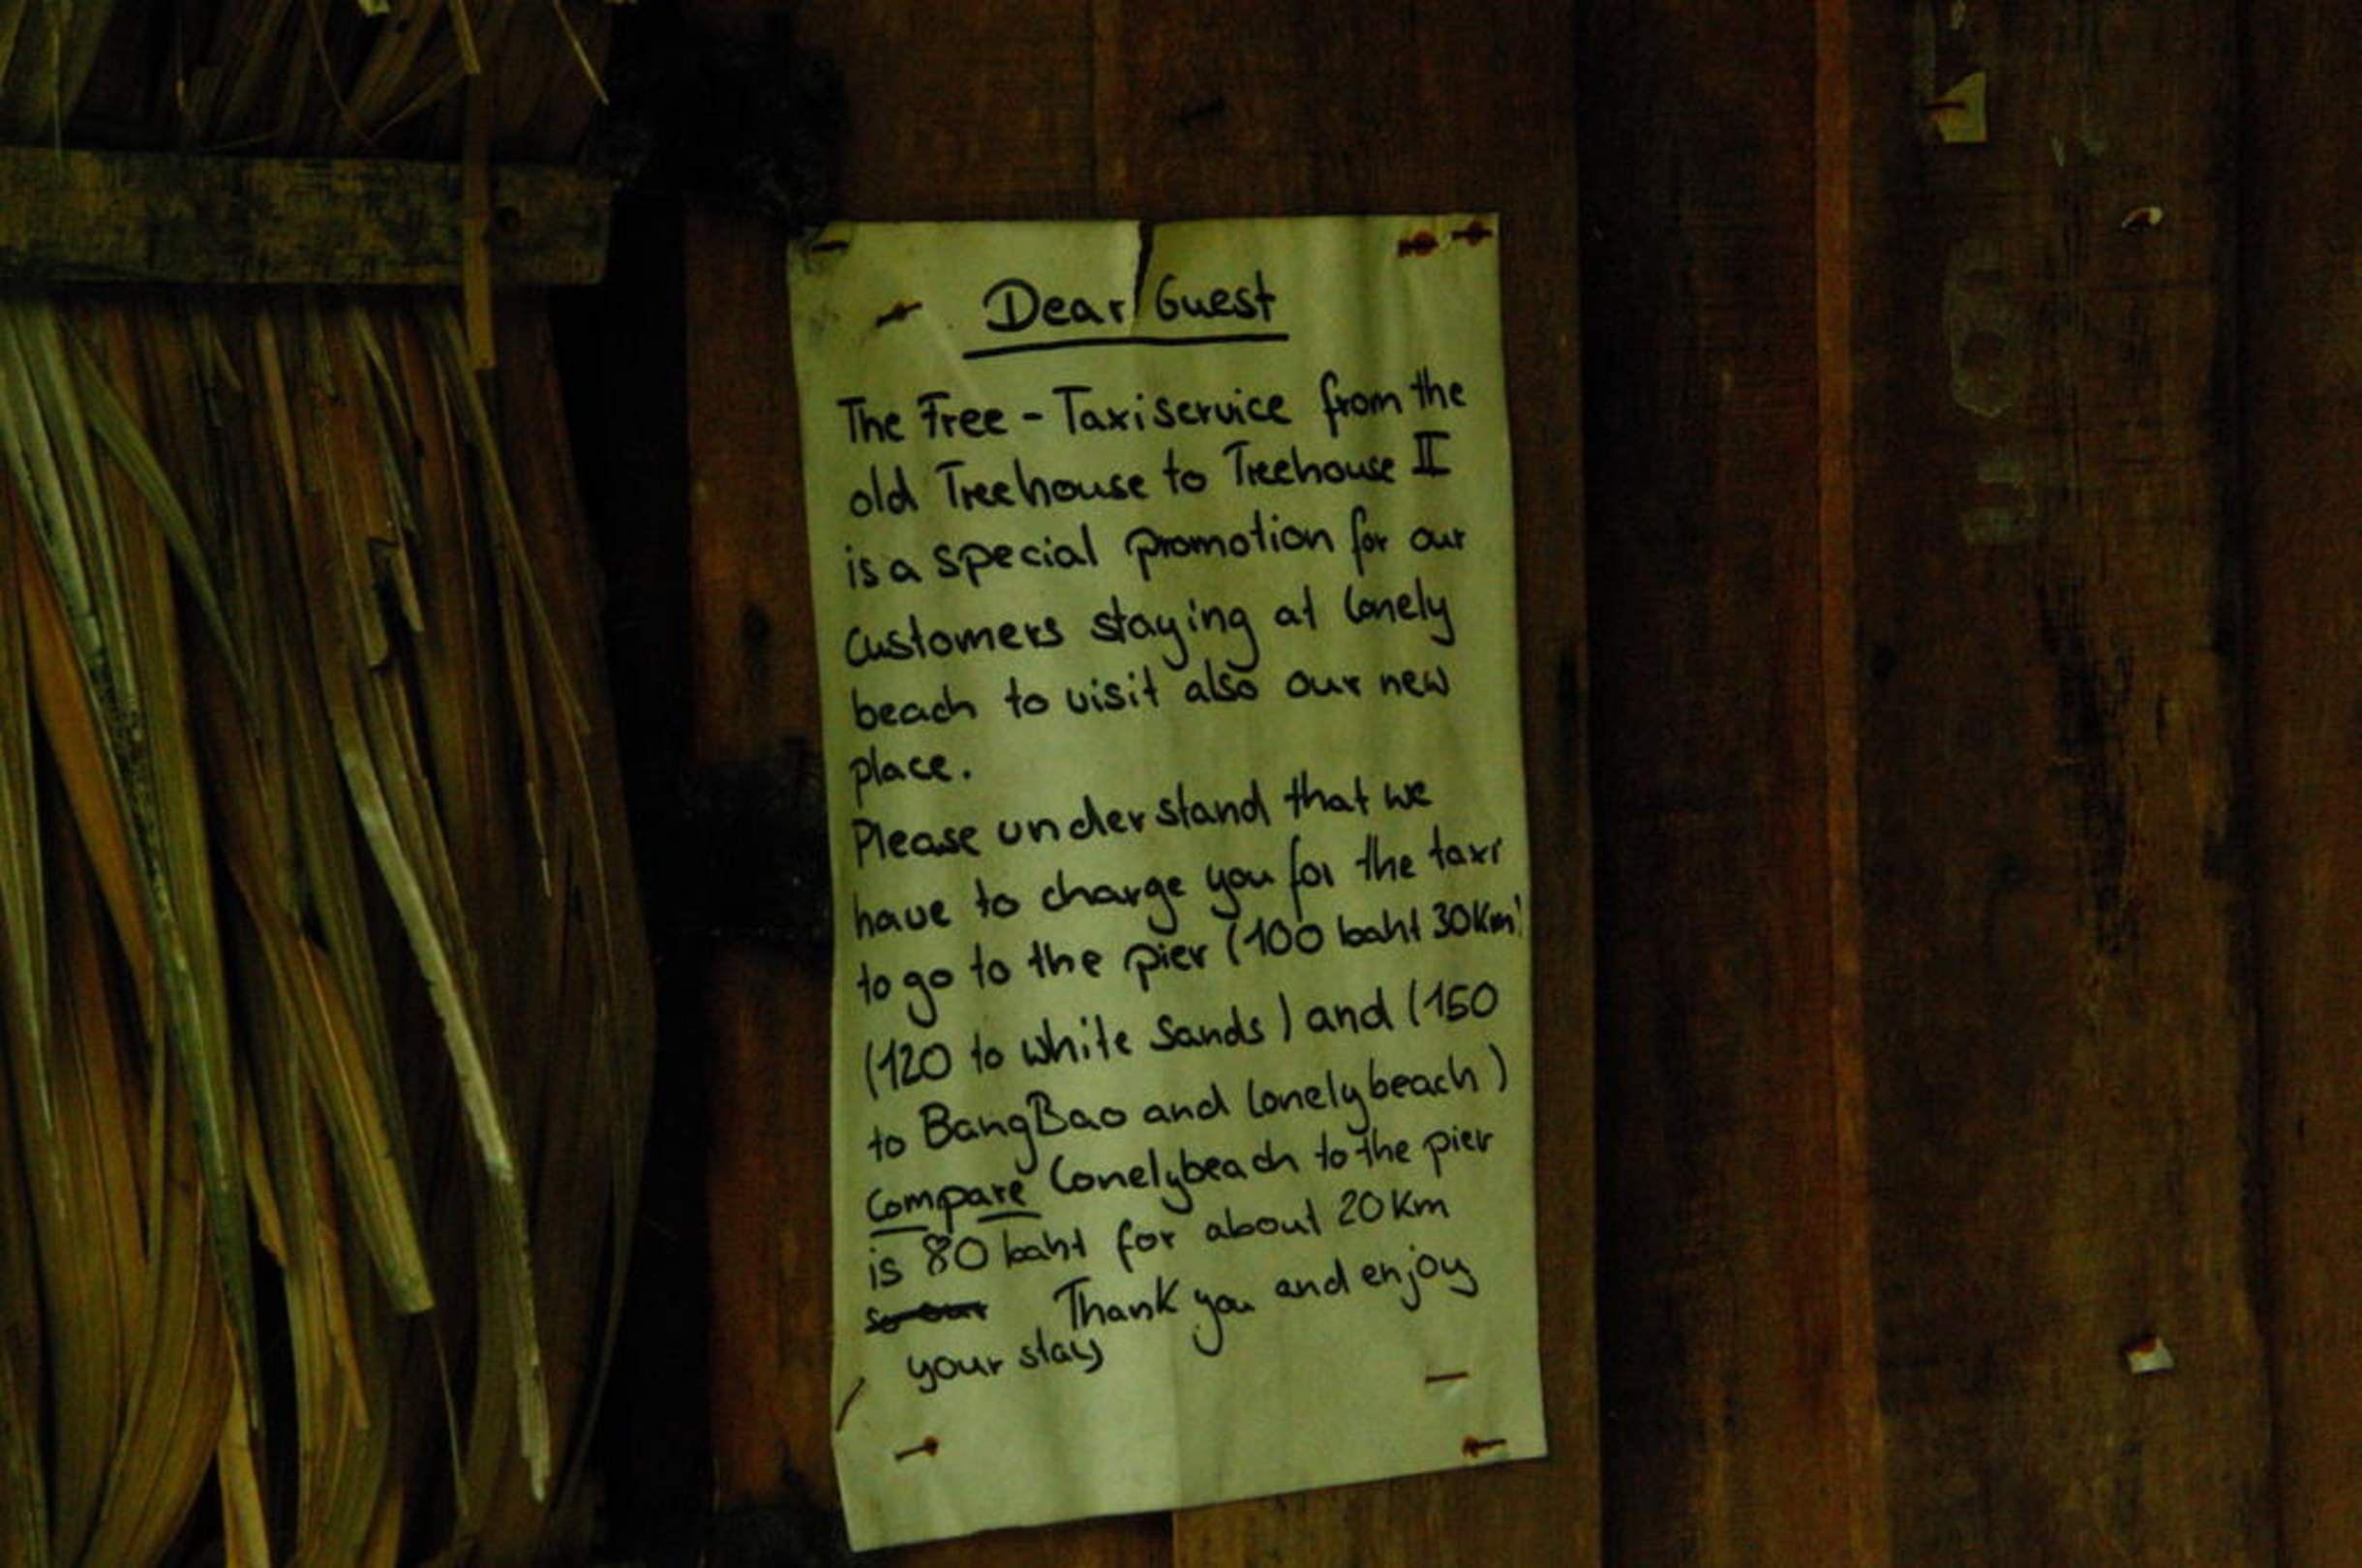 Dear Guest
The Free - Taxiservice from the
old Treehouse to Treehouse II
is a special promotion for our
customers staying at lonely
beach to visit also our new
place.
Please understand that we
have to charge you for the taxi
to go to the pier (100 baht 30Km)
(120 to white Sands) and (150
to BangBao and lonelybeach)
Compare lonelybeach to the pier
is 80 baht for about 20 Km
so our Thank you and enjoy
your stay